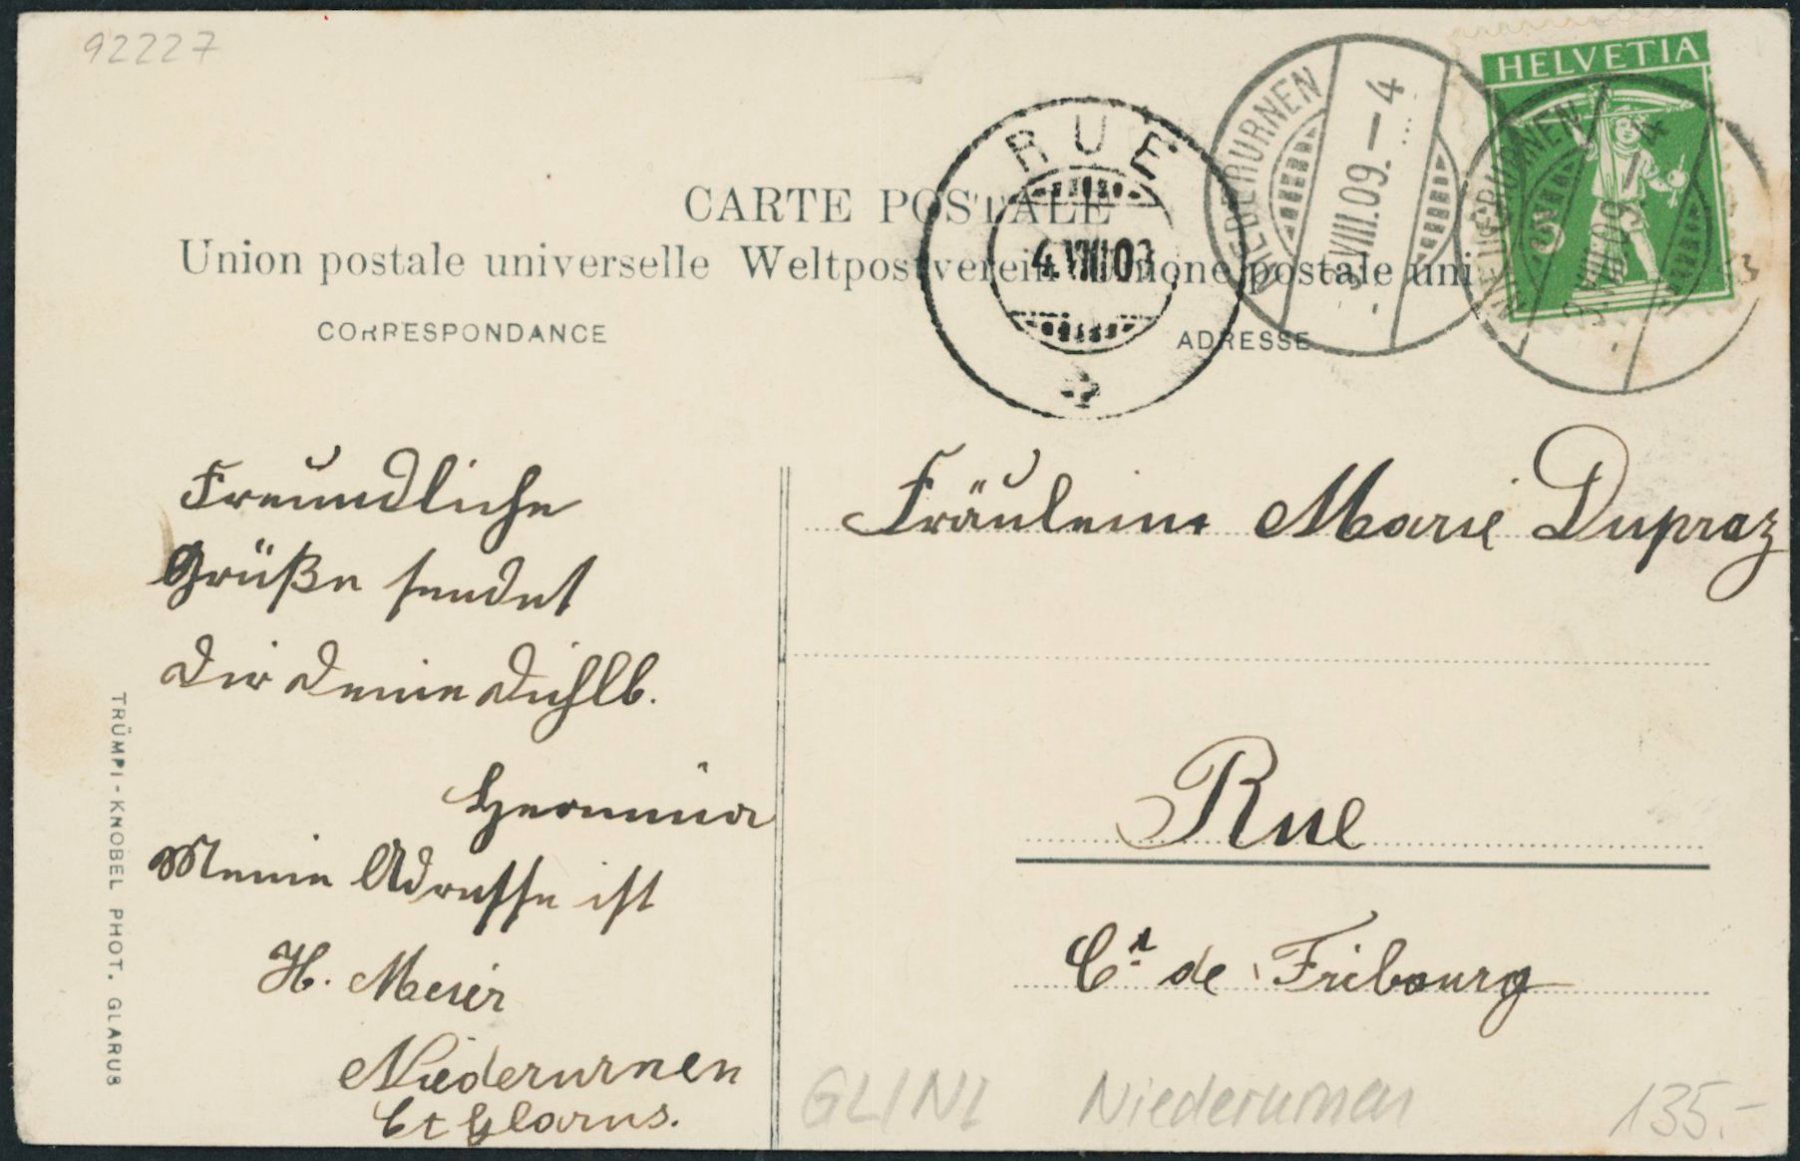 92227
HELVETIA
NIEDERURNEN
3.VIII.09.-4
NIEDERURNEN
3.VIII.09-4
RUE
4.VIII.09
CARTE POSTALE
Union postale universelle Weltpostverein Unione postale uni
CORRESPONDANCE
ADRESSE
Freundliche
Grüße sendet
Dir Deine Dichlb.
Hermina
Meine Adresse ist
H. Meier
Niederurnen
Ct Glarus.
Fräulein Marie Dupraz
Rue
Ct. de Fribourg
TRÜMPI-KNOBEL PHOT. GLARUS
Niederurnen
135.-